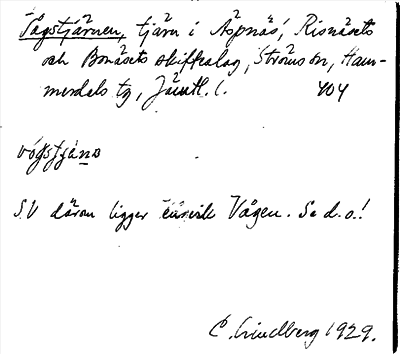 Vågstjärnen, tjärn i Äspnäs, Risnäsets
och Bonäsets skifteslag, Ströms sn, Ham-
merdals tg, Jämtl. l. 404
vógstjáno
S.V därom ligger enivik Vågen. Se d.o.!
C. Lindberg 1929.